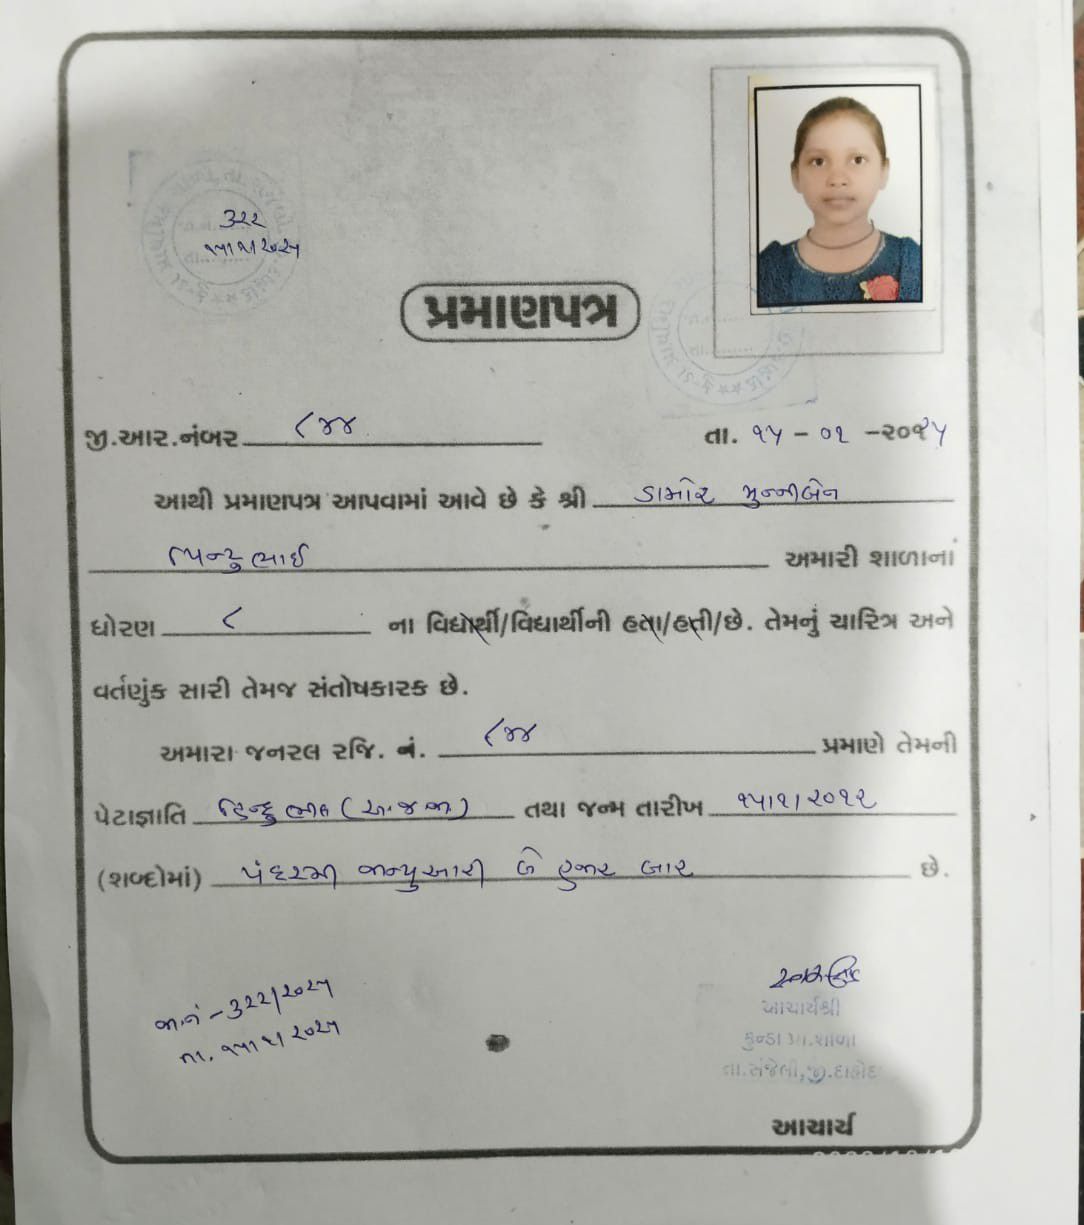 ૩૨૨
૧૫/૧/૨૦૨૫
પ્રમાણપત્ર
જી.આર.નંબર ૮૪૪
તા. ૧૫ - ૦૧ -૨૦૨૫
આથી પ્રમાણપત્ર આપવામાં આવે છે કે શ્રી ડામોર મુન્નીબેન
પિન્ટુભાઈ અમારી શાળાનાં
ધોરણ ૮ ના વિદ્યાર્થી/વિદ્યાર્થીની હતા/હતી/છે. તેમનું ચારિત્ર અને
વર્તણુંક સારી તેમજ સંતોષકારક છે.
અમારા જનરલ રજિ. નં. ૮૪૪ પ્રમાણે તેમની
પેટાજ્ઞાતિ હિન્દુ ભીલ (અ.જ.જા.) તથા જન્મ તારીખ ૧૫/૧/૨૦૧૨
(શબ્દોમાં) પંદરમી જાન્યુઆરી બે હજાર બાર છે.
જા.નં - ૩૨૨/૨૦૨૫
તા. ૧૫/૧/૨૦૨૫
આચાર્યશ્રી
કુન્ડા પ્રા.શાળા
તા.સંજેલી,જી.દાહોદ
આચાર્ય